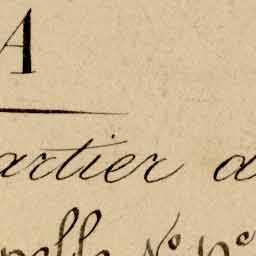 A
artier d
pelle N° n°